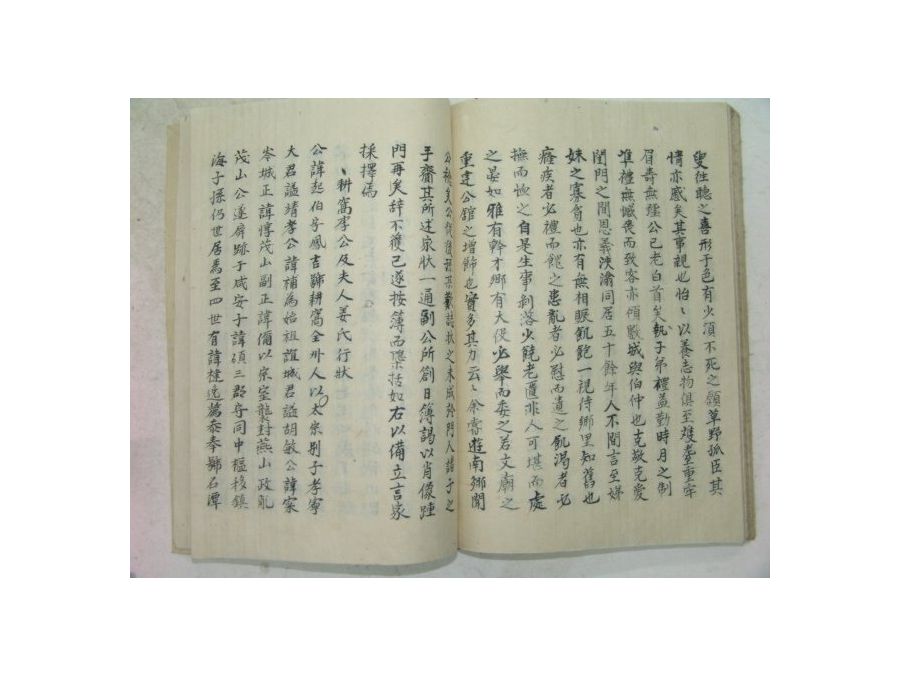 叟往聽之喜形于色有少須不死之願草野孤臣其
情亦慼矣其事親也怡〻以養志物俱至雙耋重牢
眉壽無彊公已老白首矣執子弟禮益勤時月之制
堆禮無憾喪而致客亦傾數城與伯仲也克敬克愛
閨門之間恩義浹瀜同居五十餘年人不聞言至娣
妹之寡貧也亦有無相賑飢飽一視待鄉里知舊也
癃疾者必禮而餽之患亂者必慰而遺之飢渴者必
撫而恤之自是生事剝落少饒老匱非人可堪而處
之晏如雅有幹才鄉有大役必擧而委之若文廟之
重建公舘之增餙也實多其力云〻余嘗遊南鄉聞
公
矣公
後
狀之未成於門人諸子之
手齋其所述家狀一通副公所創日簿謁以肖像踵
門再矣辞不獲已遂按簿而檃括如右以備立言家
採擇焉
耕窩李公及夫人姜氏行狀
公諱起伯号鳳吉號耕窩全州人以太宗別子孝寧
大君謚靖孝公諱補為始祖誼城君謚胡敏公諱寀
岑城正諱惇茂山副正諱儞以宗室龍封燕山政亂
茂山公遂屛跡于咸安子諱碩三郡守同中樞移鎭
海子孫仍世居焉至四世有諱楗逸薦泰奉號石潭